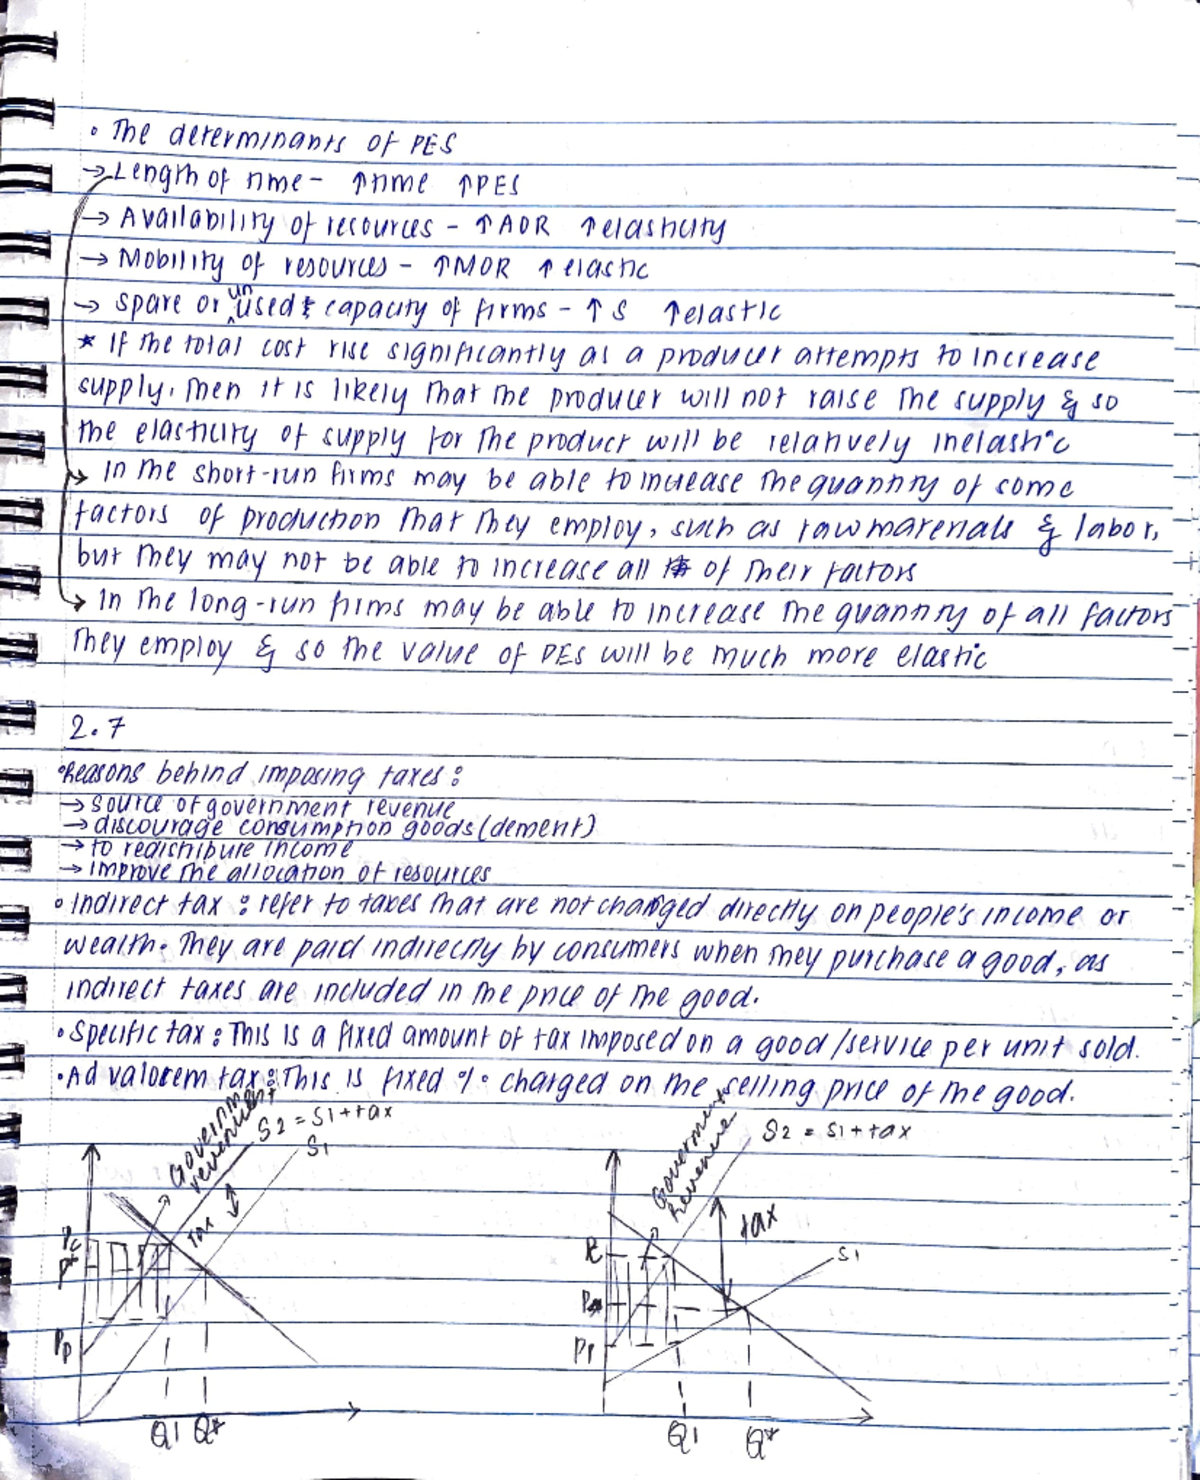 • The determinants of PES
→ Length of time - ↑time ↑PES
→ Availability of resources - ↑AOR ↑elasticity
→ Mobility of resources - ↑MOR ↑elastic
→ spare or unused capacity of firms - ↑S ↑elastic
* If the total cost rise significantly as a producer attempts to increase
supply, then it is likely that the producer will not raise the supply & so
the elasticity of supply for the product will be relatively inelastic
→ In the short-run firms may be able to increase the quantity of some
factors of production that they employ, such as raw materials & labor,
but they may not be able to increase all of their factors
→ In the long-run firms may be able to increase the quantity of all factors
They employ & so the value of PES will be much more elastic
2.7
•Reasons behind imposing taxes:
→ source of government revenue
→ discourage consumption goods (dement)
→ to redistribute income
→ improve the allocation of resources
• Indirect tax: refer to taxes that are not charged directly on people's income or
wealth. They are paid indirectly by consumers when they purchase a good, as
indirect taxes are included in the price of the good.
• Specific tax: This is a fixed amount of tax imposed on a good/service per unit sold.
• Ad valorem tax: This is fixed % charged on the selling price of the good.
Government revenue
S2 = S1 + tax
S1
tax
Pc
P*
Pp
Q1 Q*
Government Revenue
S2 = S1 + tax
tax
S1
Q1 Q*